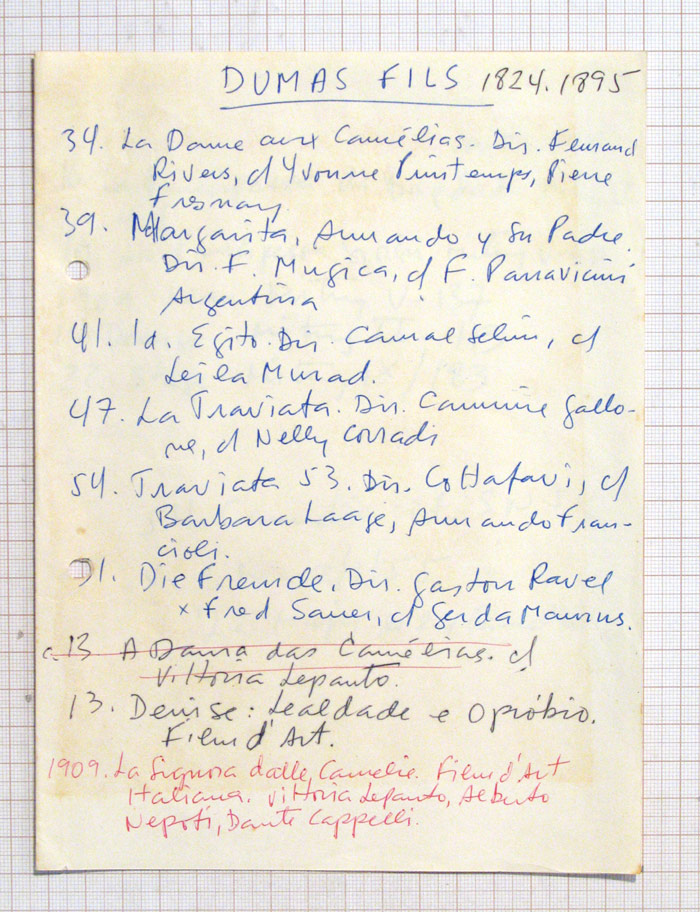 DUMAS FILS 1824.1895
34. La Dame aux Camélias. Dir. Fernand
Rivers, c/ Yvonne Printemps, Pierre
Fresnay
39. Margarita, Armando y Su Padre.
Dir. F. Mugica, c/ F. Parravicini
Argentina
41. Id. Egito. Dir. Camal Selim, c/
Leila Murad.
47. La Traviata. Dir. Carmine Gallo-
ne, c/ Nelly Corradi
54. Traviata 53. Dir. Cottafavi, c/
Barbara Laage, Armando Fran-
cioli.
31. Die Fremde. Dir. Gaston Ravel
x Fred Sauer, c/ Gerda Maurus.
c.13 A Dama das Camélias. c/
Vittoria Lepanto.
13. Denise: Lealdade e Opróbio.
Film d'Art.
1909. La Signora dalle Camelie. Film d'Art
Italiana. Vittoria Lepanto, Alberto
Nepoti, Dante Cappelli.